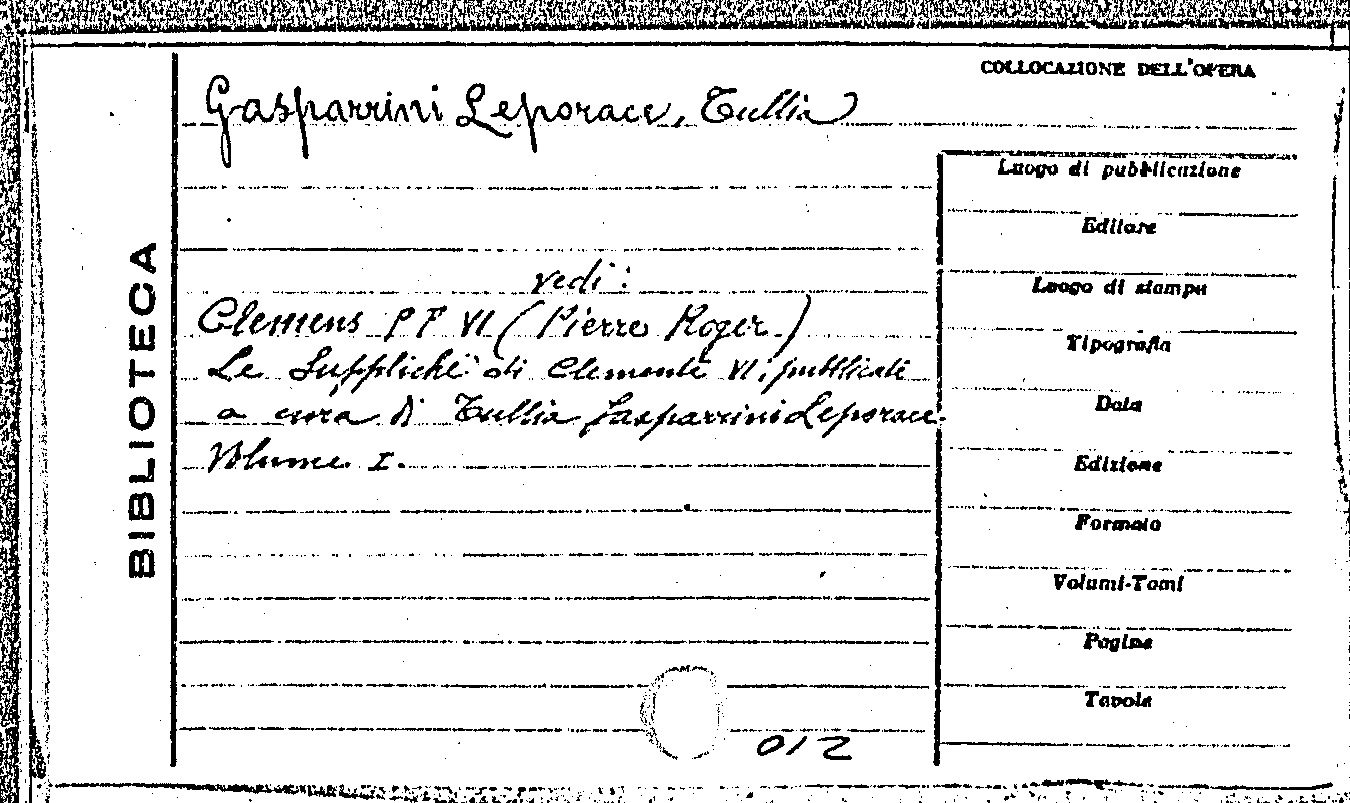 COLLOCAZIONE DELL'OPERA
Gasparrini Leporace, Tullia
BIBLIOTECA
vedi:
Clemens PP VI (Pierre Roger)
Le Suppliche di Clemente VI, pubblicate
a cura di Tullia Gasparrini Leporace.
Volume I.
012
Luogo di pubblicazione
Editore
Luogo di stampa
Tipografia
Data
Edizione
Formato
Volumi-Tomi
Pagine
Tavole